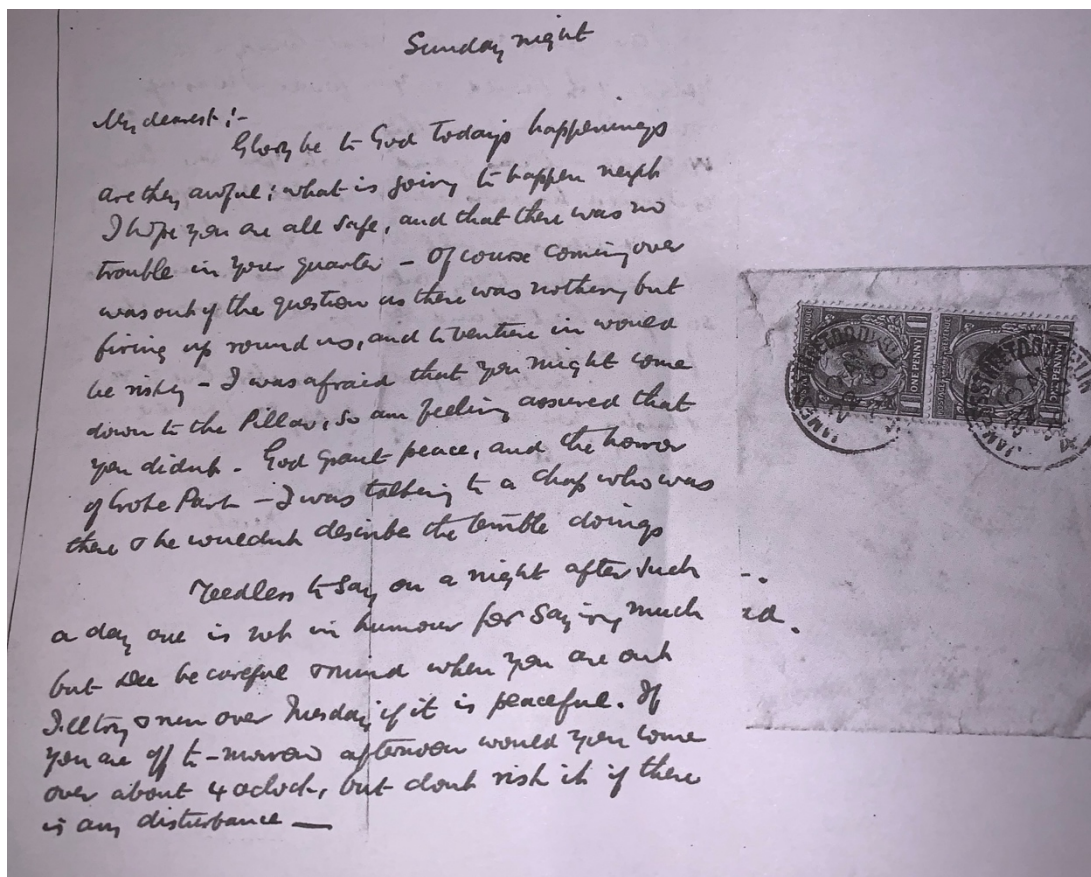 Sunday night
My dearest :-
Glory be to God todays happenings
are they awful; what is going to happen next
I hope you are all safe, and that there was no
trouble in your quarter - Of course coming over
was out of the question as there was nothing but
firing up round us, and to venture in would
be risky - I was afraid that you might come
down to the Pillar, so am feeling assured that
you didnt - God grant peace, and the horror
of Croke Park - I was talking to a chap who was
there & he wouldnt describe the terrible doings
Needless to say on a night after such
a day one is not in humour for saying much
but be careful & mind when you are out
I'll try & run over Tuesday if it is peaceful. If
you are off to-morrow afternoon would you come
over about 4 oclock, but dont risk it if there
is any disturbance —
ONE PENNY
ONE PENNY